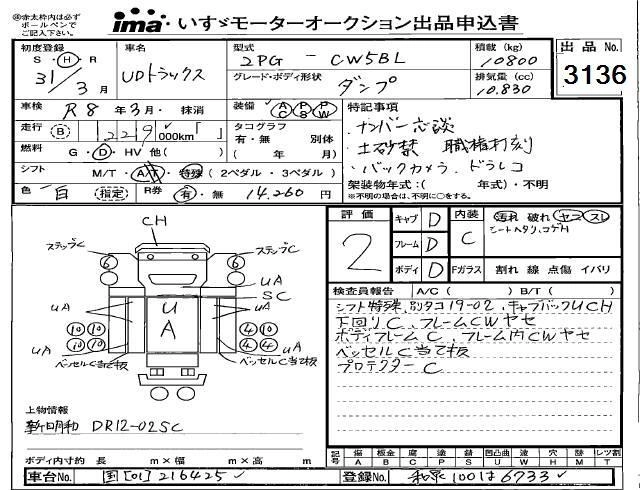 ※赤太枠内は必ず
ボールペンで
ご記入下さい。
ima いすゞモーターオークション出品申込書
初度登録
S・H・R
31/3月
車名
UDトラックス
型式
2PG - CW5BL
積載 (kg)
10800
出品No.
3136
グレード・ボディ形状
ダンプ
排気量 (cc)
10,830
車検 R8年3月・抹消
装備 AC PS PW
走行 (B) 1229 000km「 」
タコグラフ
有・無 別体
( 年 月)
燃料 G・D・HV 他( )
シフト M/T・A/T・特殊(2ペダル・3ペダル)
色 白 (指定) R券 有・無 14,260円
特記事項
・ナンバー応談
・土砂禁 職権打刻
・バックカメラ、ドラレコ
架装物年式:( 年式)・不明
※不明の場合は、不明に○をする。
評価 2
キャブ D
フレーム D
ボディ D
内装 C
汚れ 破れ ヤニ スレ
シートヘタリ、コゲH
Fガラス 割れ 線 点傷 イバリ
CH
ステップC
ステップC
6
6
UA
SC
UA
UA
UA
10 10
10 10
4 10
4 4
UA
UA
ベッセルC当て板
ベッセルC当て板
検査員報告 A/C( ) B/T( )
シフト特殊、別タコ19-02、キャブバックUCH
下回りC、フレームCWヤセ
ボディフレームC、フレーム内CWヤセ
ベッセルC当て板
プロテクターC
上物情報
新明和 DR12-02SC
ボディ内寸約 長 m×幅 m×高 m
記号 傷 A 板金 B 腐 C 塗 P 錆 S 凹凸曲 U 波 W 穴 H 跡 M レツ割 T
車台No. 国[01]216425
登録No. 和泉100は6733